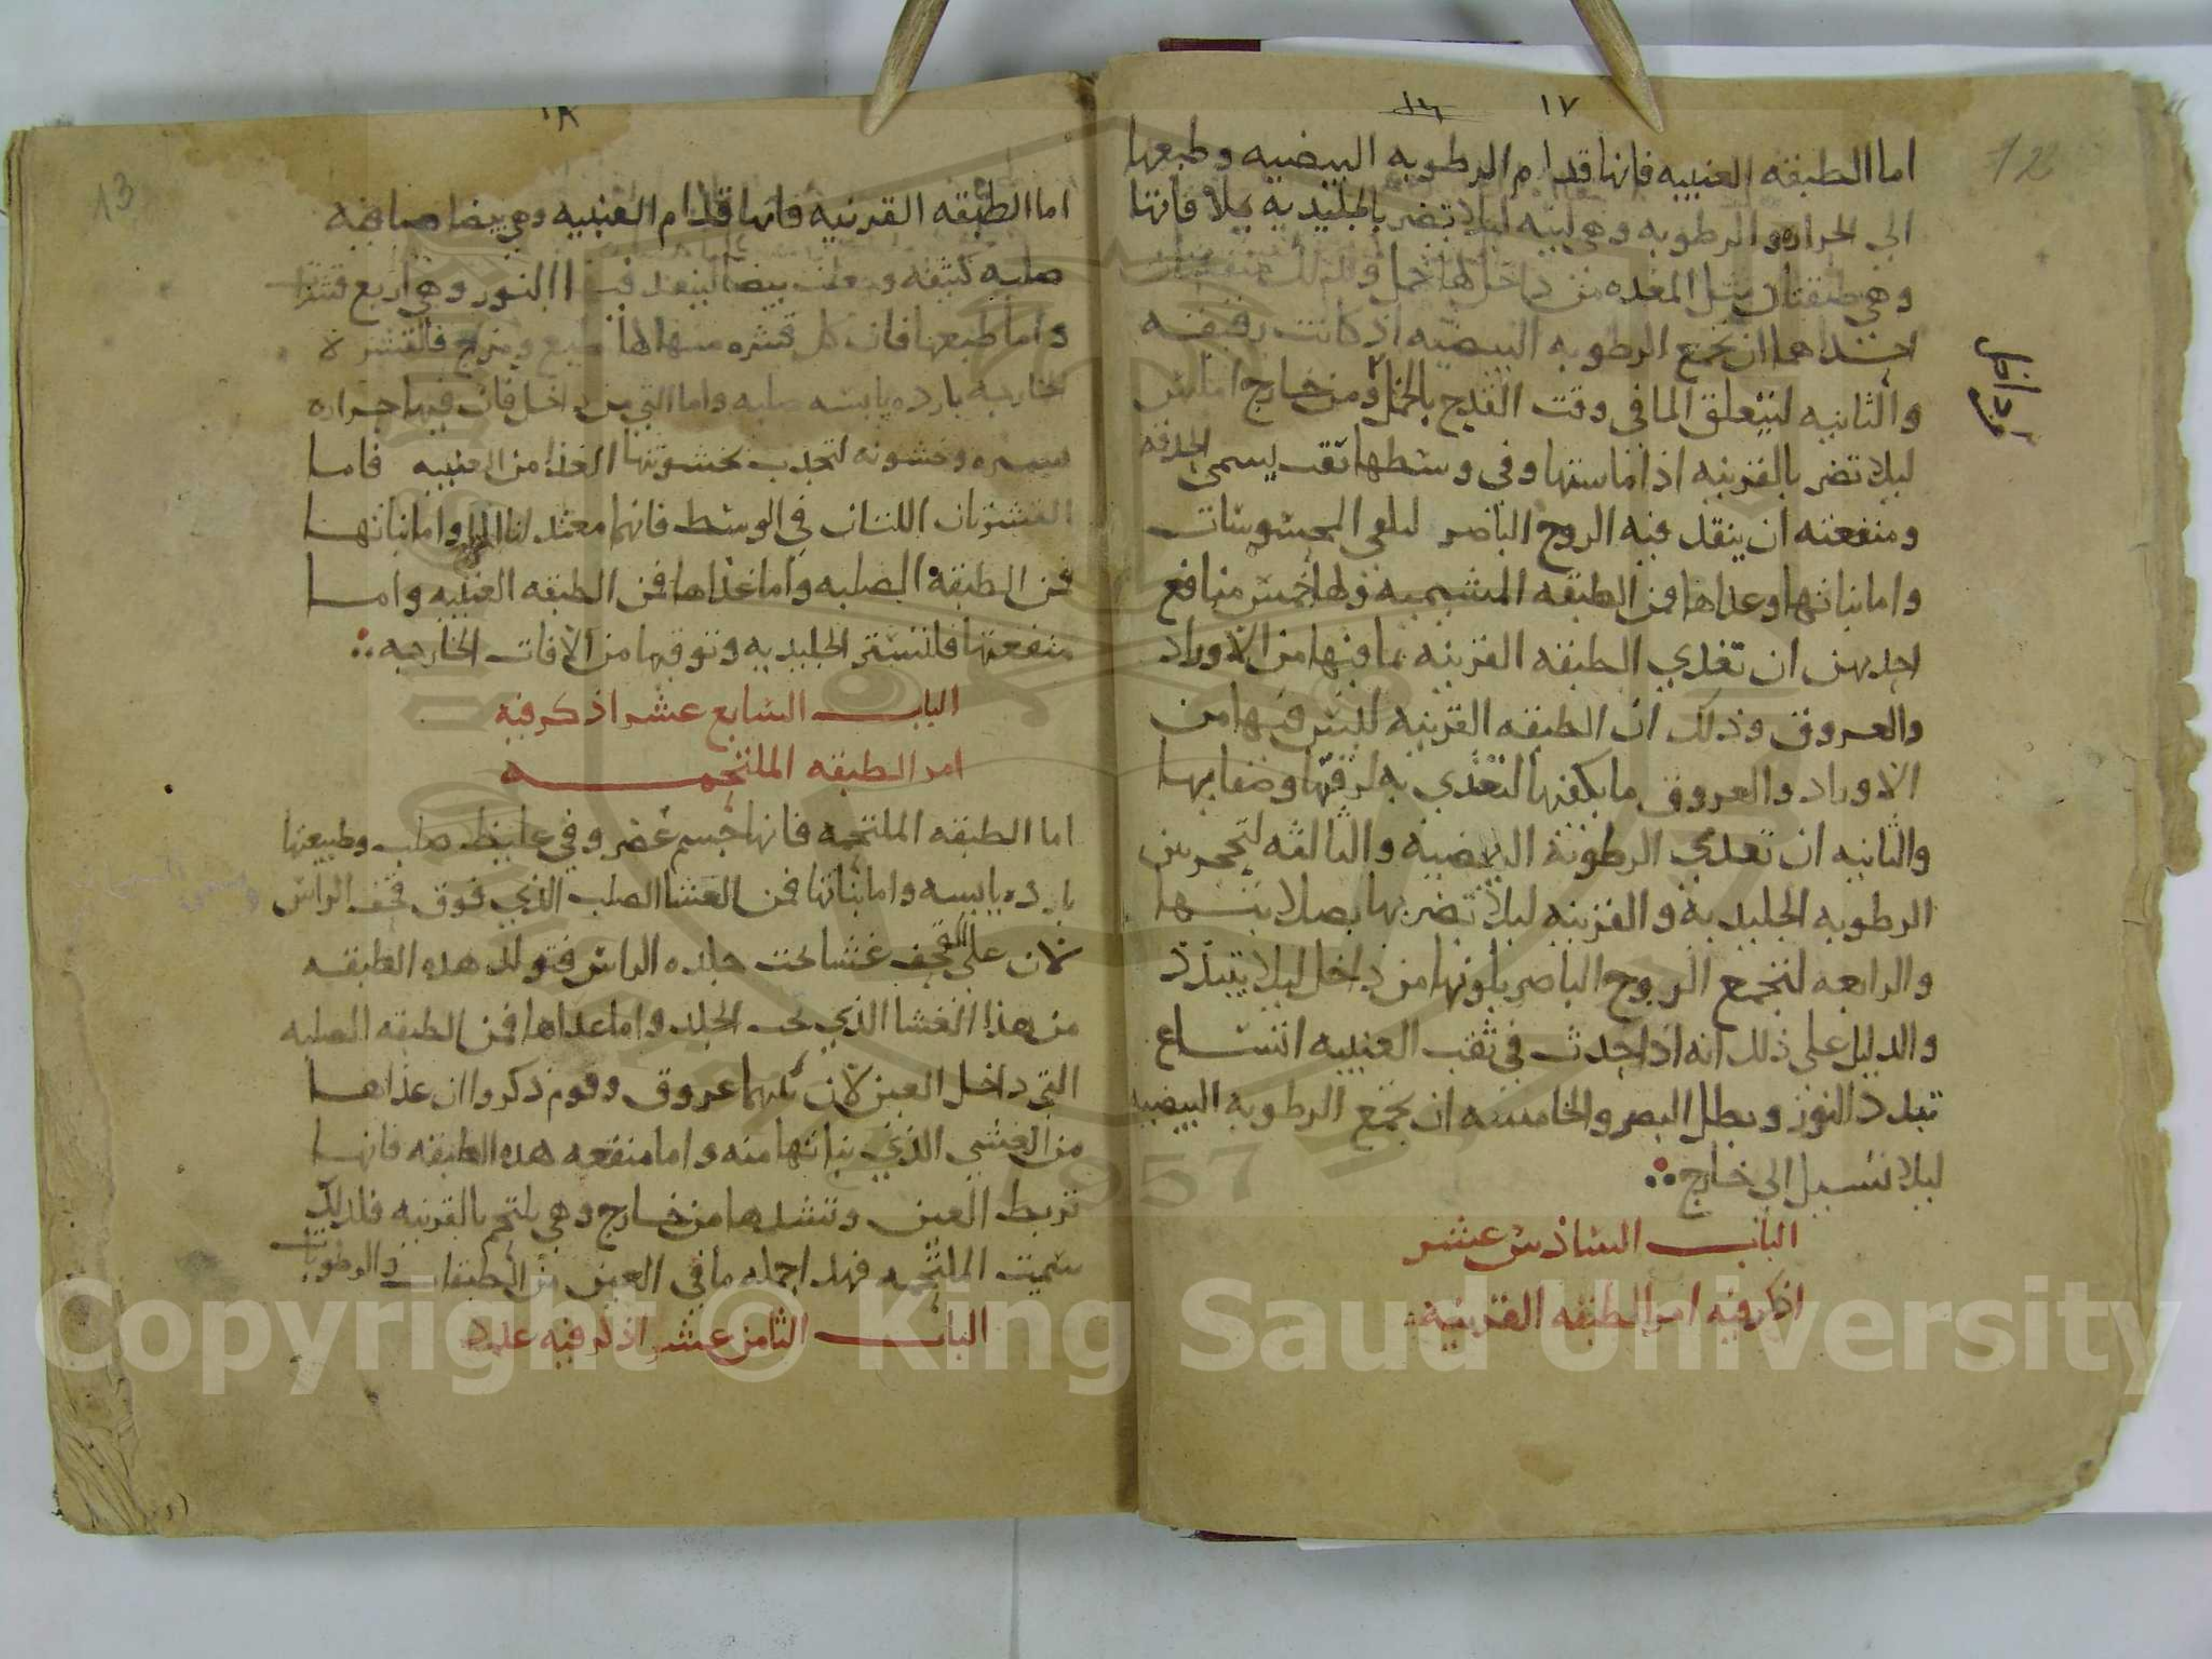 ١٧
12
اما الطبقه العنبيه فانها قدام الرطوبه البيضيه وطبعها
الى الحراره والرطوبه وهى لينه ليلا تضر بالجليديه يلاقاتها
وهى طبقتان مثل المعده من داخلها خمل ولذلك منفعتان
احداهما ان تجمع الرطوبه البيضيه اذ كانت رقيقه
والثانيه ليتعلق الما فى وقت القدح بالخمل ومن خارج املس
ليلا تضر بالقرنيه اذا ماستها وفى وسطها ثقب يسمى الحدقه
ومنفعته ان ينفذ فيه الروح الباصر ليلقى المحسوسات
واما نباتها وغذاها فمن الطبقه المشيميه ولها خمس منافع
احديهن ان تغذي الطبقه القرنيه بما فيها من الاوراد
والعروق وذلك ان الطبقه القرنيه ليس فيها من
الاوراد والعروق ما يكفيها لتغذي به لرقتها وصفايها
والثانيه ان تغذي الرطوبة البيضيه والثالثه لتحجز بين
الرطوبه الجليديه والقرنيه ليلا تضر بها بصلابتها
والرابعه لتجمع الروح الباصر بلونها من داخل ليلا يتبدد
والدليل على ذلك انه اذا حدث فى ثقب العنبيه اتساع
تبدد النور وبطل البصر والخامسه ان تجمع الرطوبه البيضيه
ليلا تسيل الى خارج
الباب السادس عشر
اذكر فيه امر الطبقه القرنيه
١٨
13
اما الطبقه القرنيه فانها قدام العنبيه وهى بيضا صافيه
صلبه كثيفه وجعلت بيضا لينفذ فيها النور وهى اربع قشرات
واما طبعها فان كل قشره منها لها طبع ومزاج فالقشر لا
لخارجه بارده يابسه صلبه واما التى من داخل فان فيها حراره
يسيره وخشونه لتجذب بخشونتها الغذا من العنبيه فاما
القشرتان اللتان فى الوسط فانهما معتدلتا واما نباتها
فمن الطبقة الصلبه واما غذاها فمن الطبقه العنبيه واما
منفعتها فلتستر الجليديه وتوقيها من الافات الخارجيه
الباب السابع عشر اذكر فيه
امر الطبقه الملتحمه
اما الطبقه الملتحمه فانها جسم غضروفى غليظ صلب وطبيعتها
بارده يابسه واما نباتها فمن الغشا الصلب الذي فوق قحف الراس
لان على القحف غشا تحت جلده الراس فتولد هذه الطبقه
من هذا الغشا الذي تحت الجلد واما غذاها فمن الطبقه الصلبه
التى داخل العين لان بينهما عروق وقوم ذكروا ان غذاها
من الغشى الذي نباتها منه واما منفعه هذه الطبقه فانها
تربط العين وتشدها من خارج وهى يلتحم بالقرنيه فلذلك
سميت الملتحمه فهذا جمله ما فى العين من الطبقات والرطوبات
الباب الثامن عشر اذكر فيه عدد
1957
Copyright © King Saud University